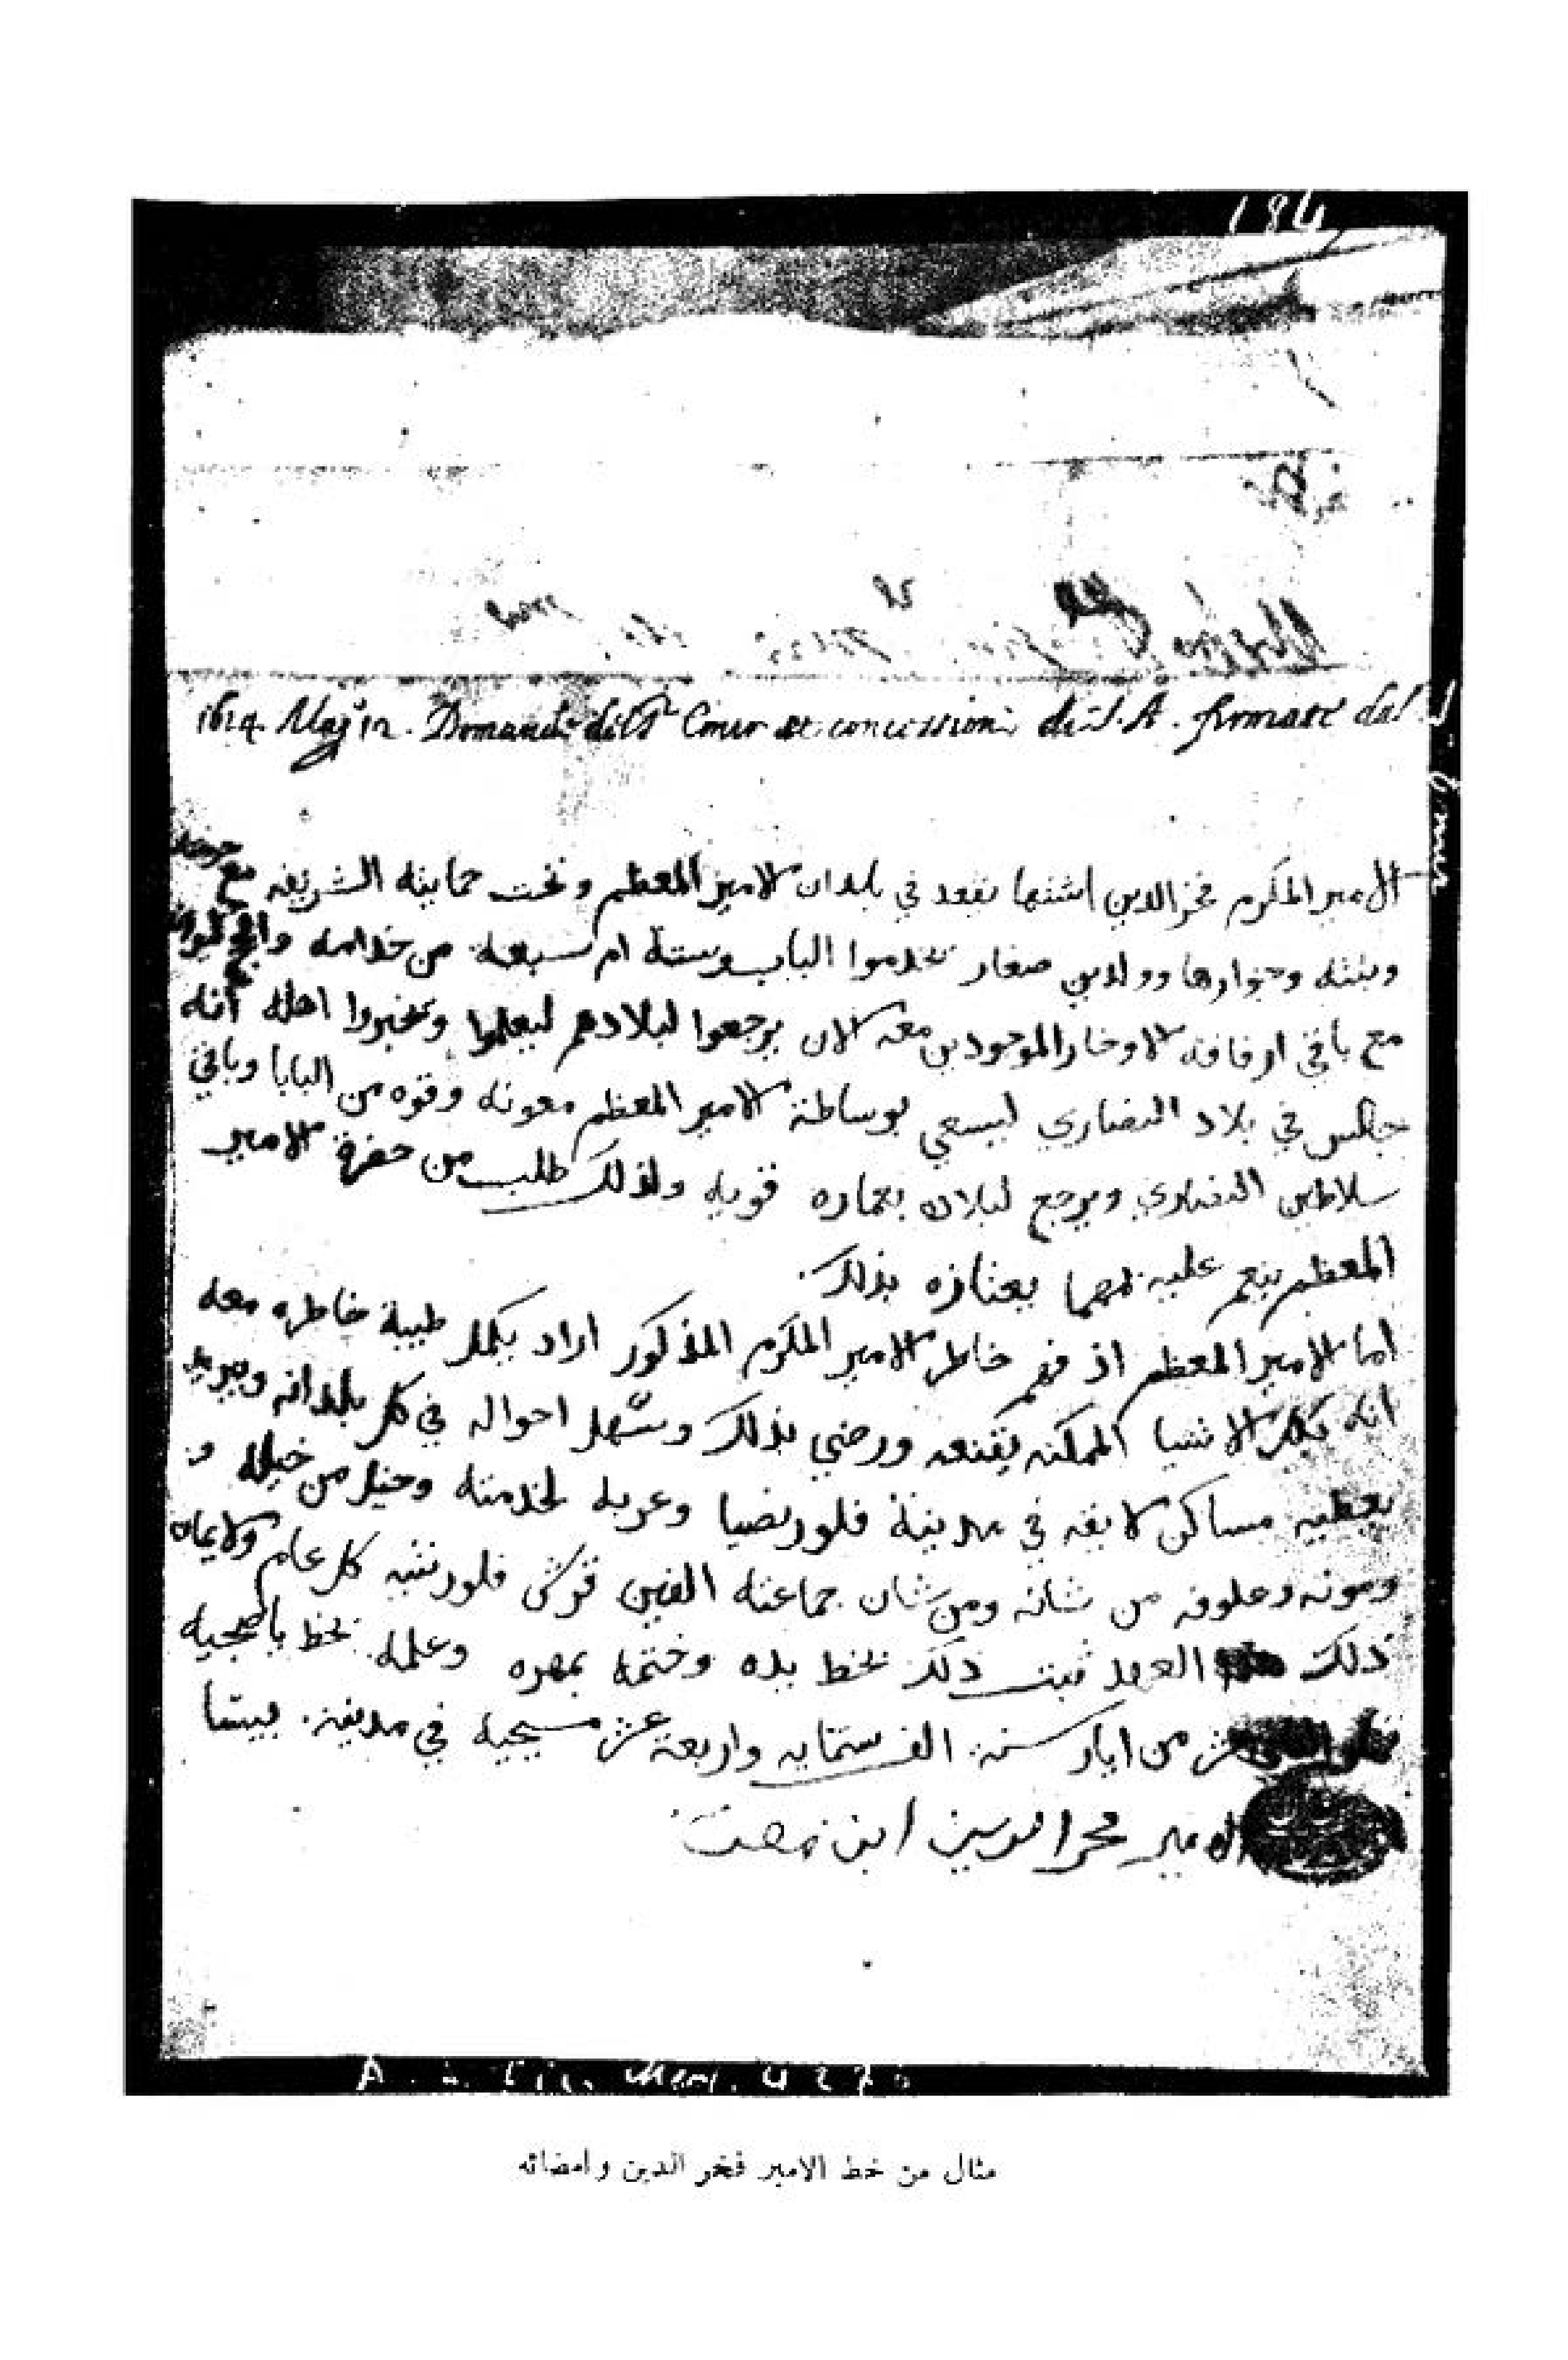 184
1614. Maj 12. Domande del S.r Emir et concessioni di S. A. firmate dal
Emir
الامير المكرم فخر الدين اشتها يقعد في بلدان الامير المعظم وتحت حمايته الشريفه مع حرمته
وبنته وجوارها وولدين صغار يخدموا الباب وستة ام سبعة من خدامه
مع باقي ارفاقته الاوخار الموجودين معه الان يرجعوا لبلادهم ليعلموا ويخبروا اهله انه
جالس في بلاد النصاري ليسعي بوساطة الامير المعظم معونه وقوه من البابا وباقي
سلاطين النصاري ويرجع لبلاده بعماره قويه ولذلك طلب من حضرة الامير
المعظم ينعم عليه مهما يعتازه بذلك.
اما الامير المعظم اذ فهم خاطر الامير المكرم المذكور اراد يكمل طيبة خاطره معه
انه بكل الاشيا الممكنه يقنعه ورضي بذلك وسهل احواله في كل بلدانه ويريد
يعطيه مساكن لايقه في مدينة فلورنضيا وعربه لخدمته وخيل من خيله و
ومونه وعلوفه من شانه ومن شان جماعته الفين قرش فلورنتيه كل عام ولايمان
ذلك العهد ثبت ذلك بخط يده وختمه بمهره وعلمه بخط بالعجميه
من ايار سنة الف ستمايه واربعة عشر مسيحيه في مدينة بيشا
الامير فخر الدين ابن معن
A. S. Fir. Med. 4275
مثال من خط الامير فخر الدين وامضائه